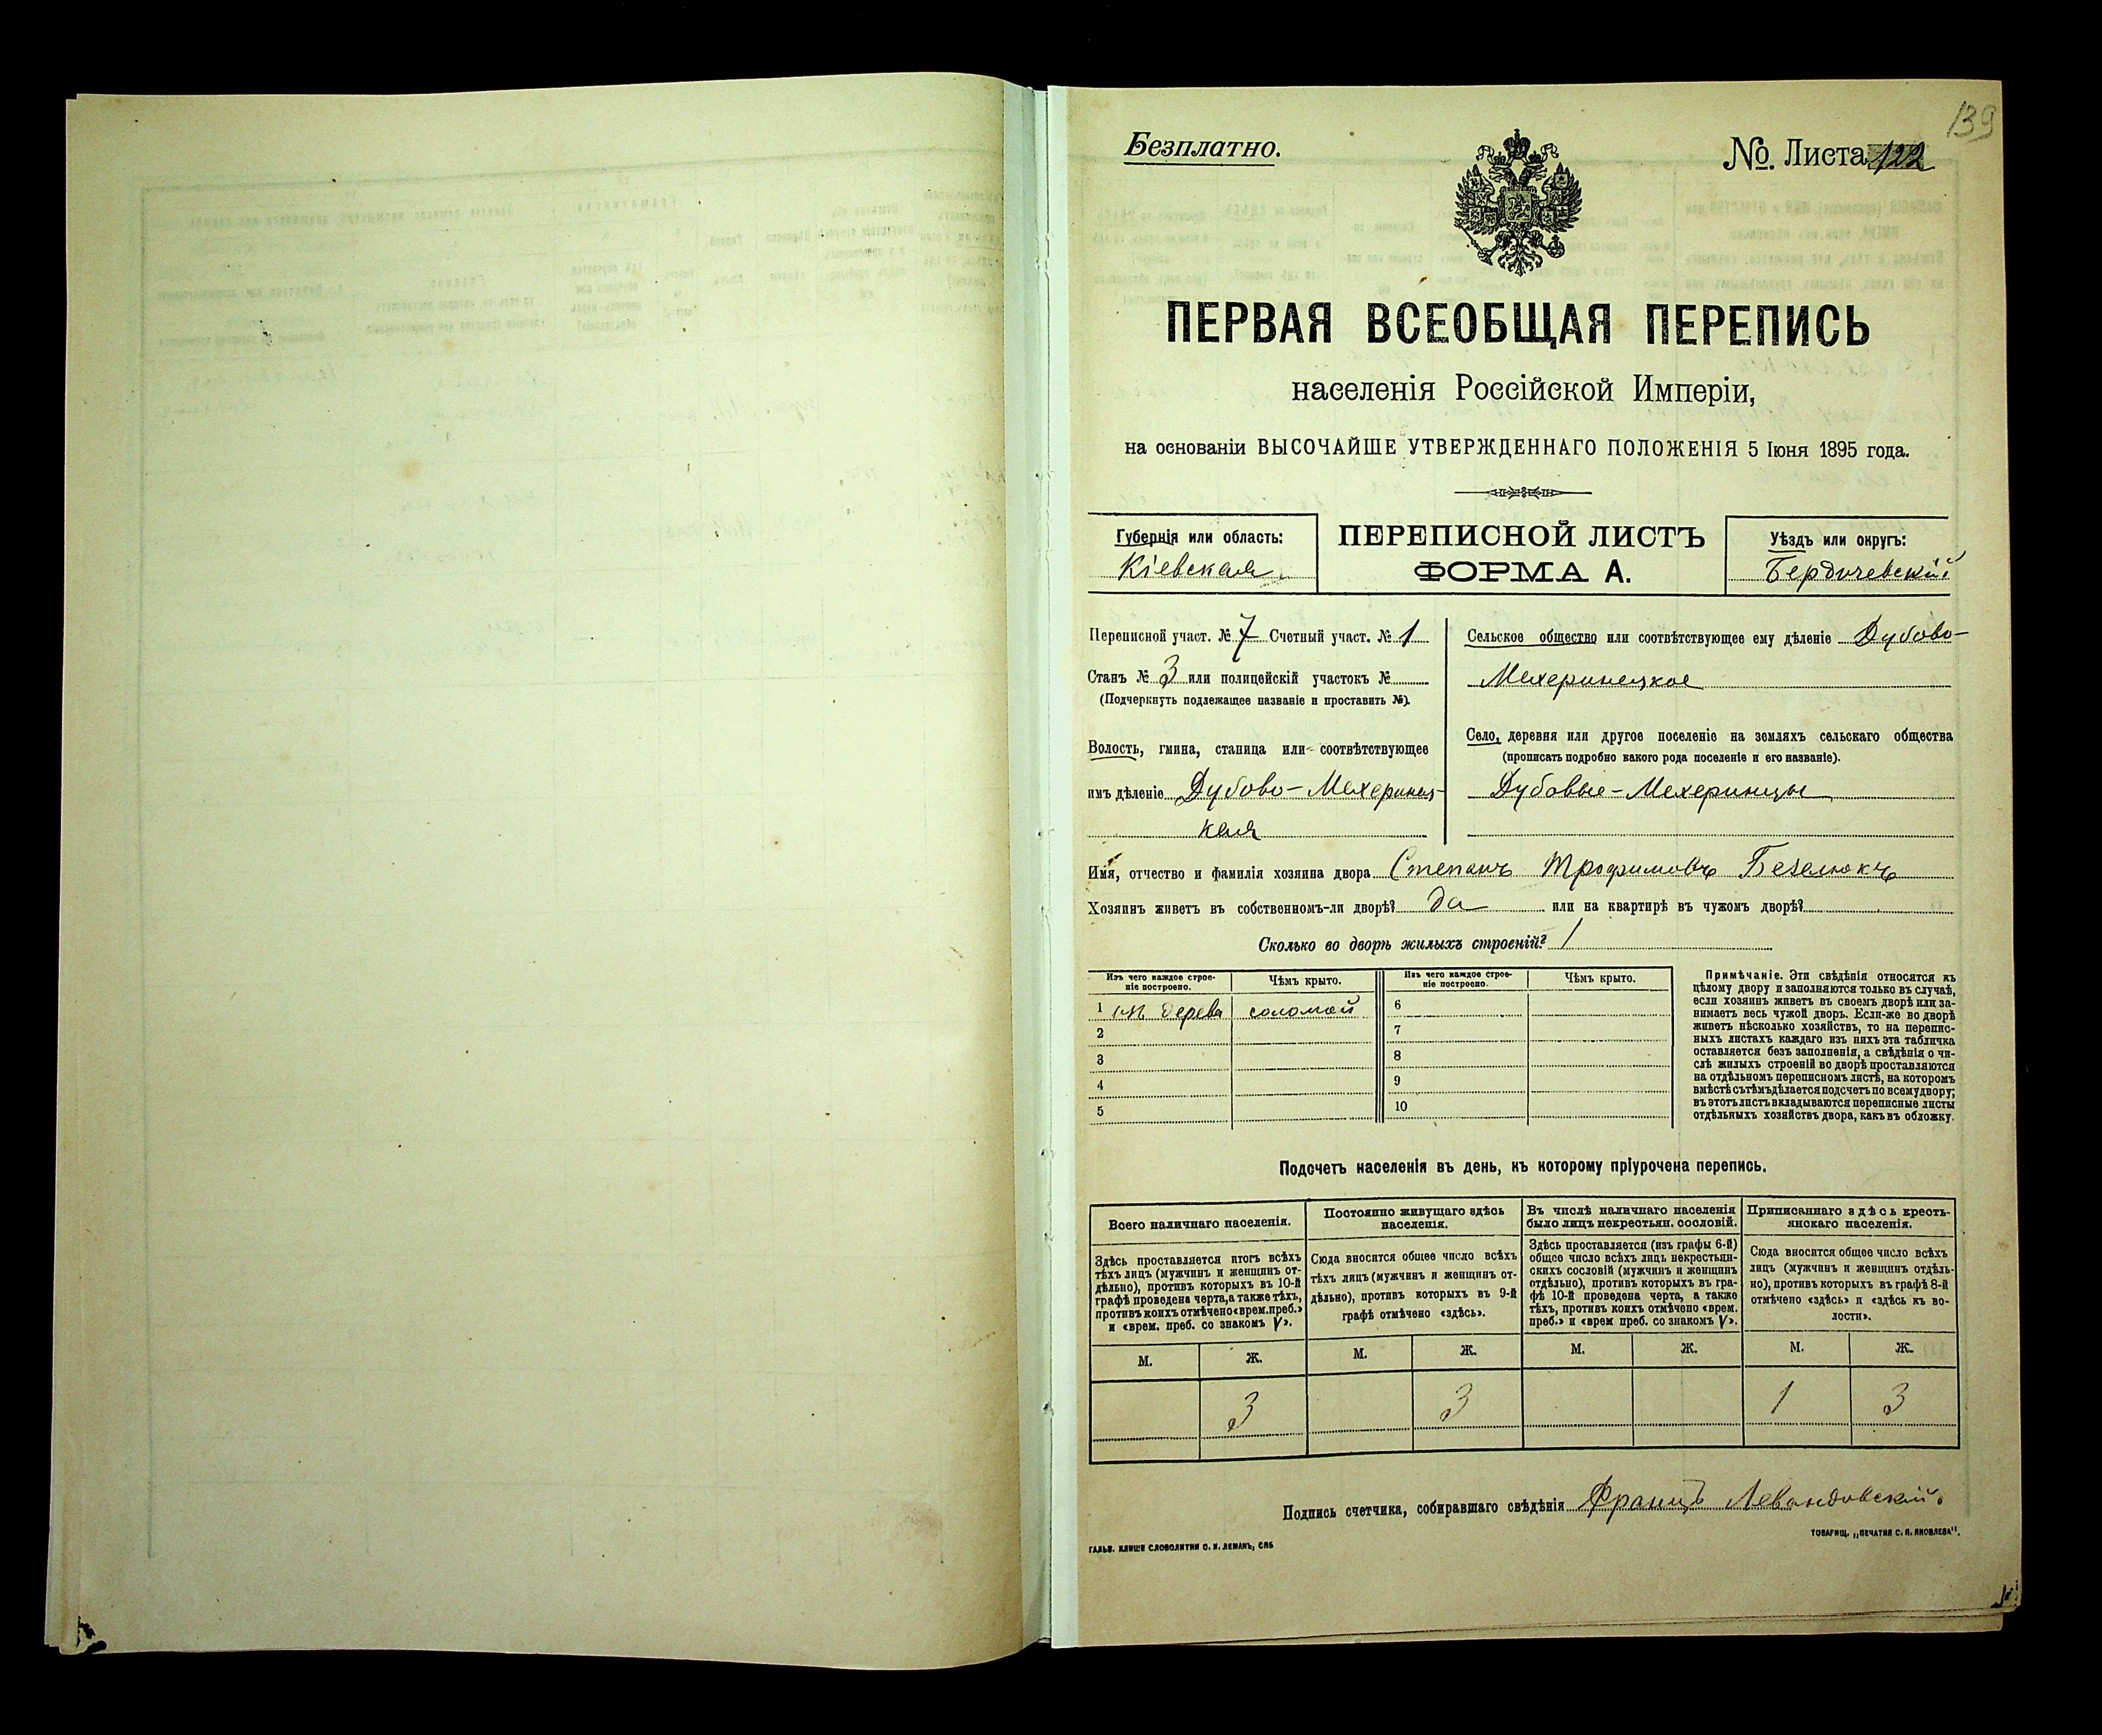 139
Безплатно.
№. Листа 122
ПЕРВАЯ ВСЕОБЩАЯ ПЕРЕПИСЬ
населенія Россійской Имперіи,
на основаніи ВЫСОЧАЙШЕ УТВЕРЖДЕННАГО ПОЛОЖЕНІЯ 5 Іюня 1895 года.
Губернія или область:
Кіевская
ПЕРЕПИСНОЙ ЛИСТЪ
ФОРМА А.
Уѣздъ или округъ:
Бердичевскій
Переписной участ. № 7 Счетный участ. № 1
Станъ № 3 или полицейскій участокъ №
(Подчеркнуть подлежащее названіе и проставить №).
Волость, гмина, станица или соотвѣтствующее
имъ дѣленіе Дубово-Мехеринец-
кая
Сельское общество или соотвѣтствующее ему дѣленіе Дубово-
Мехеринецкое
Село, деревня или другое поселеніе на земляхъ сельскаго общества
(прописать подробно какого рода поселеніе и его названіе).
Дубовые-Мехеринцы
Имя, отчество и фамилія хозяина двора Степанъ Трофимовъ Безелюкъ
Хозяинъ живетъ въ собственномъ-ли дворѣ? да или на квартирѣ въ чужомъ дворѣ?
Сколько во дворѣ жилыхъ строеній? 1
Изъ чего каждое строе-
ніе построено.
Чѣмъ крыто.
Изъ чего каждое строе-
ніе построено.
Чѣмъ крыто.
1 изъ дерева соломой 6
2 7
3 8
4 9
5 10
Примѣчаніе. Эти свѣдѣнія относятся къ
цѣлому двору и заполняются только въ случаѣ,
если хозяинъ живетъ въ своемъ дворѣ или за-
нимаетъ весь чужой дворъ. Если-же во дворѣ
живетъ нѣсколько хозяйствъ, то на перепис-
ныхъ листахъ каждаго изъ нихъ эта табличка
оставляется безъ заполненія, а свѣдѣнія о чи-
слѣ жилыхъ строеній во дворѣ проставляются
на отдѣльномъ переписномъ листѣ, на которомъ
вмѣстѣ съ тѣмъ дѣлается подсчетъ по всему двору;
въ этотъ листъ вкладываются переписные листы
отдѣльныхъ хозяйствъ двора, какъ въ обложку.
Подсчетъ населенія въ день, къ которому пріурочена перепись.
Всего наличнаго населенія.
Здѣсь проставляется итогъ всѣхъ
тѣхъ лицъ (мужчинъ и женщинъ от-
дѣльно), противъ которыхъ въ 10-й
графѣ проведена черта, а также тѣхъ,
противъ коихъ отмѣчено «врем. преб.»
и «врем. преб. со знакомъ V».
Постоянно живущаго здѣсь
населенія.
Сюда вносится общее число всѣхъ
тѣхъ лицъ (мужчинъ и женщинъ от-
дѣльно), противъ которыхъ въ 9-й
графѣ отмѣчено «здѣсь».
Въ числѣ наличнаго населенія
было лицъ некрестьян. сословій.
Здѣсь проставляется (изъ графы 6-й)
общее число всѣхъ лицъ некрестьян-
скихъ сословій (мужчинъ и женщинъ
отдѣльно), противъ которыхъ въ гра-
фѣ 10-й проведена черта, а также
тѣхъ, противъ коихъ отмѣчено «врем.
преб.» и «врем преб. со знакомъ V».
Приписаннаго здѣсь кресть-
янскаго населенія.
Сюда вносится общее число всѣхъ
лицъ (мужчинъ и женщинъ отдѣль-
но), противъ которыхъ въ графѣ 8-й
отмѣчено «здѣсь» и «здѣсь къ во-
лости».
М. Ж. М. Ж. М. Ж. М. Ж.
3 3 1 3
Подпись счетчика, собиравшаго свѣдѣнія Францъ Левандовскій.
ГАЛЬВ. КЛИШЕ СЛОВОЛИТНИ О. И. ЛЕМАНЪ, СПБ
ТОВАРИЩ. „ПЕЧАТНЯ С. П. ЯКОВЛЕВА".